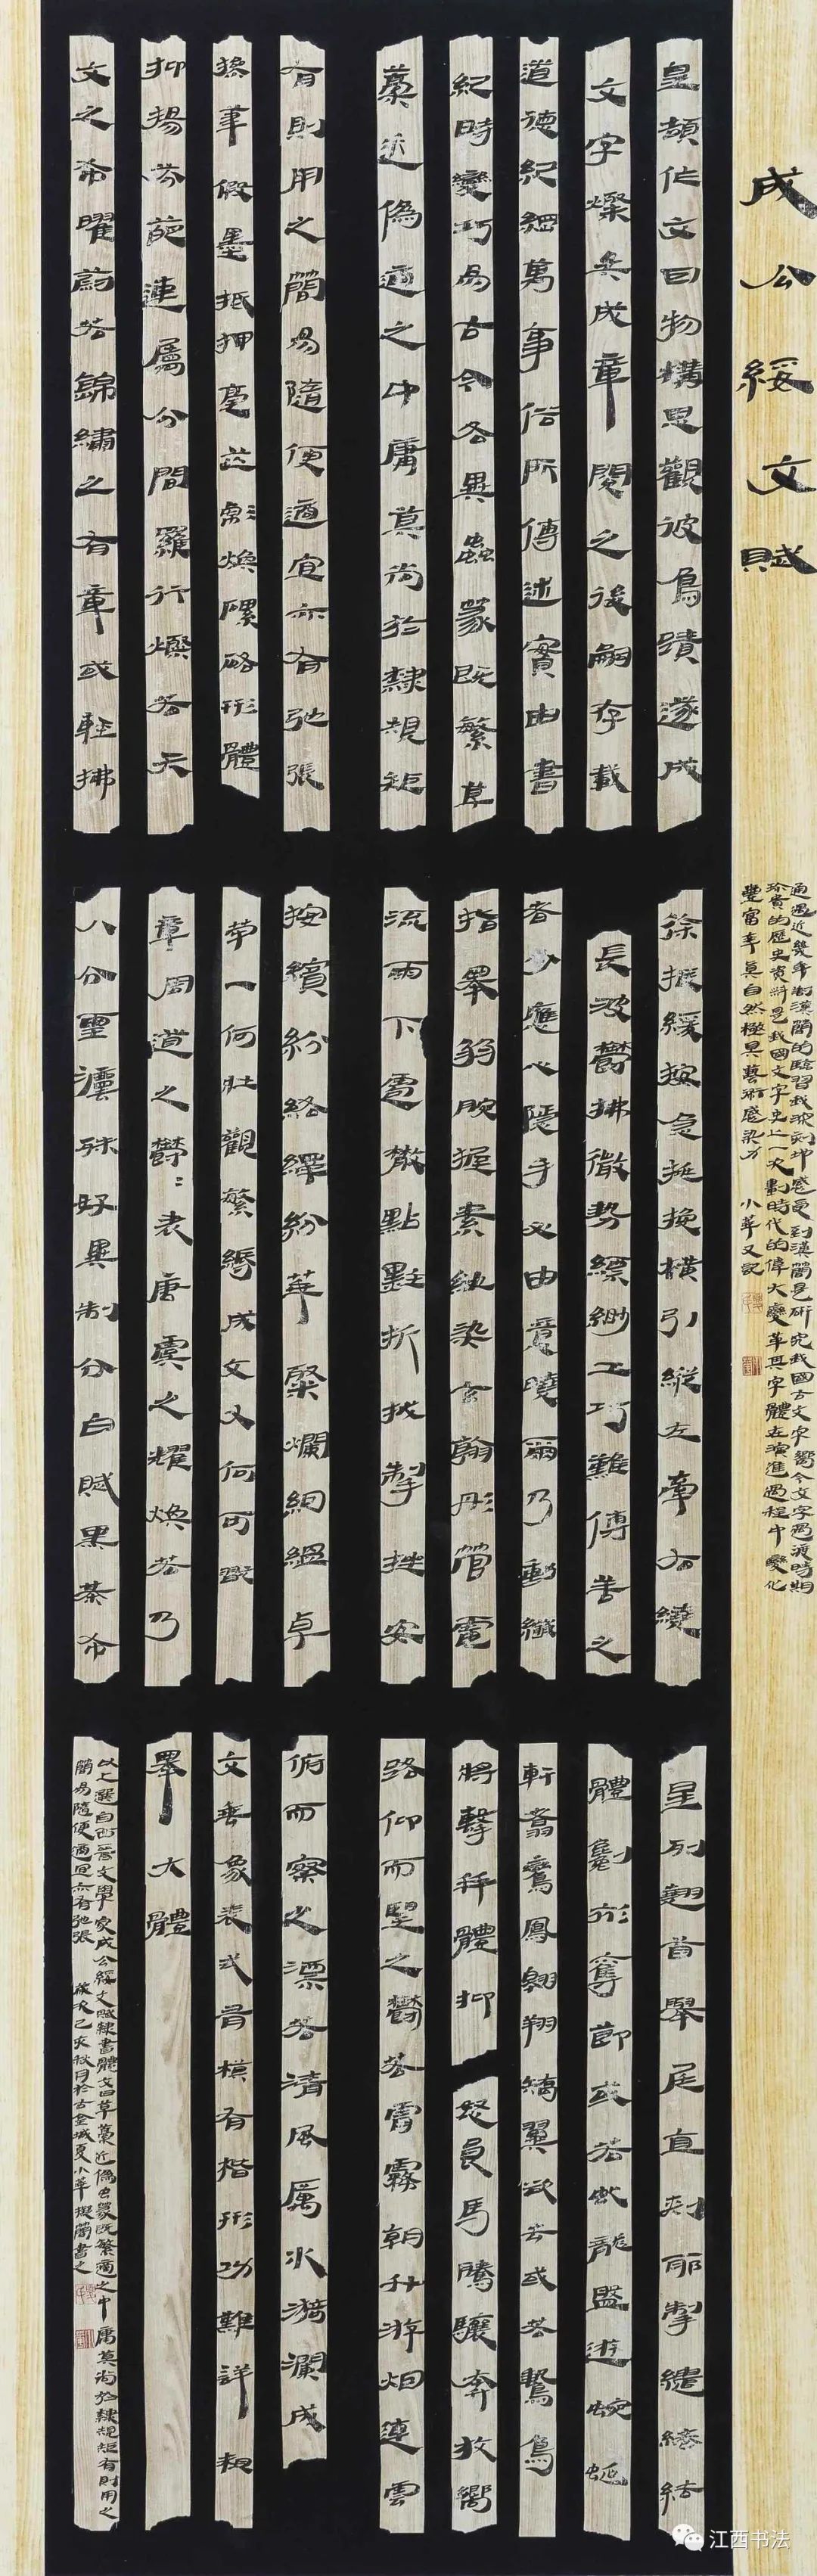 成公綏文賦
通過近幾年對漢簡的臨習我深刻地感受到漢簡是研究我國古文字嚮今文字過渡時期
珍貴的歷史資料是我國文字史上一次劃時代的偉大變革其字體在演進過程中變化
豐富率真自然極具藝術感染力 小華又記
皇頡作文因物構思觀彼鳥蹟遂成
文字燦矣成章閱之後嗣存載
道德紀綱萬事俗所傳述實由書
紀時變巧易古今各異蟲篆既繁草
藁近偽適之中庸莫尚於隸規矩
有則用之簡易隨便適宜亦有弛張
操筆假墨抵押毫芒彪煥磥硌形體
抑揚芬葩連屬分間羅行爛若天
文之布曜蔚若錦繡之有章或輕拂
徐振緩按急挑挽橫引縱左牽右繞
長波鬱拂微勢縹緲工巧難傳善之
者少應心隱手必由意曉爾乃動纖
指舉弱腕握素紈染玄翰彤管電
流雨下雹散點黕折拔掣挫安
按繽紛絡繹紛華粲爛絪縕卓
犖一何壯觀繁縟成文又何可翫
章周道之鬱鬱表唐虞之耀煥若乃
八分璽法殊好異制分白賦黑棊布
星列翹首舉尾直刺邪掣繾綣結
體劖衫奪節或若虬龍盤遊蜿蜒
軒翥鸞鳳翱翔矯翼欲去或若鷙鳥
將擊并體抑怒良馬騰驤奔放嚮
路仰而望之鬱若霄霧朝升游烟連雲
俯而察之漂若清風厲水漪瀾成
文垂象表式有模有楷形功難詳粗
舉大體
以上選自西晉文學家成公綏文賦隸書體文曰草藁近偽虫篆既繁適之中庸莫尚於隸規矩有則用之
簡易隨便適宜亦有弛張 歲次己亥秋月於古金城夏小華擬簡書之
江西书法